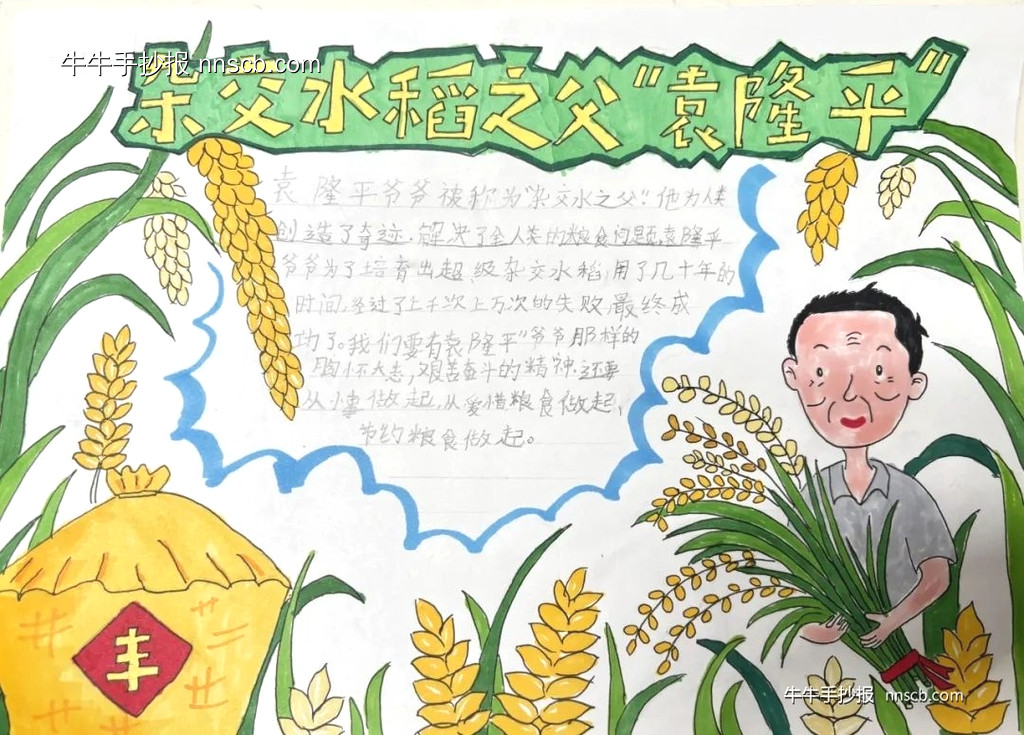 牛牛手抄报 nnscb.com
杂交水稻之父"袁隆平"
袁隆平爷爷被称为"杂交水之父".他为人类
创造了奇迹.解决了全人类的粮食问题,袁隆平
爷爷为了培育出超级杂交水稻,用了几十年的
时间,经过了上千次上万次的失败,最终成
功了。我们要有袁隆平"爷爷那样的
胸怀大志,艰苦奋斗的精神.还要
从小事做起,从爱惜粮食做起,
节约粮食做起。
丰
牛牛手抄报 nnscb.com